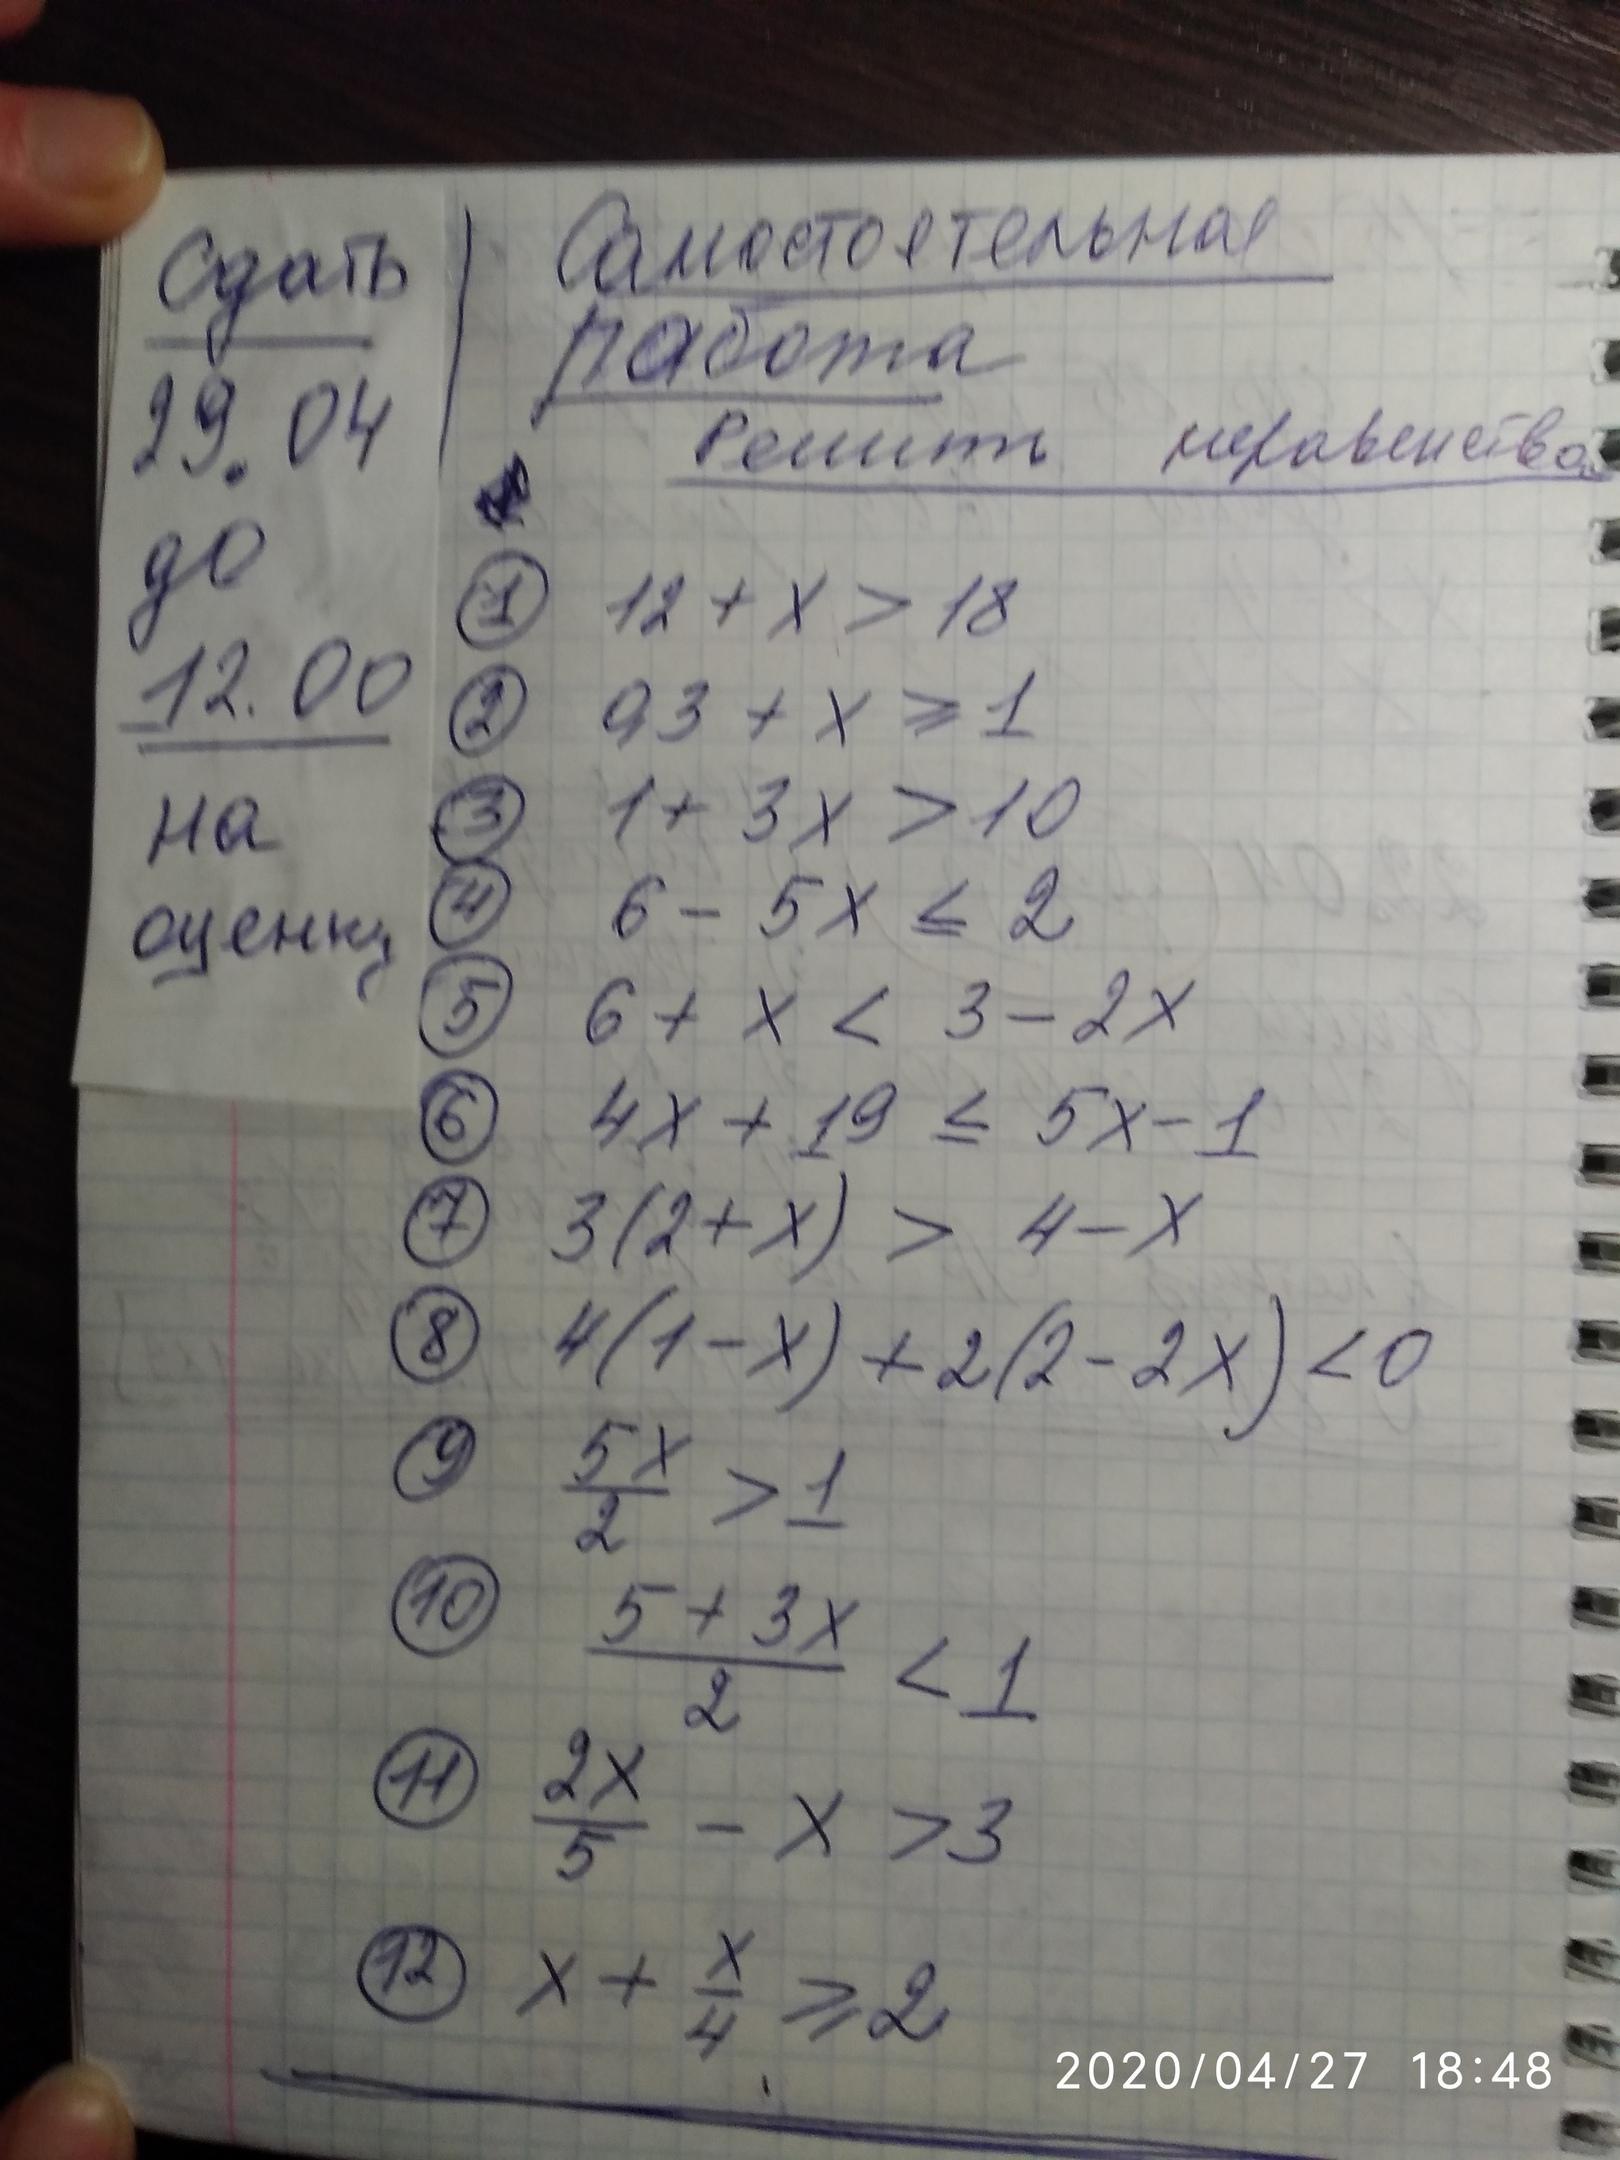 Сдать
29.04
до
12.00
на
оценку
Самостоятельная
работа
Решить неравенства
① 12 + x > 18
② 0,3 + x ⩾ 1
③ 1 + 3x > 10
④ 6 - 5x ≤ 2
⑤ 6 + x < 3 - 2x
⑥ 4x + 19 ≤ 5x - 1
⑦ 3(2 + x) > 4 - x
⑧ 4(1 - x) + 2(2 - 2x) < 0
⑨ 5x/2 > 1
⑩ (5 + 3x)/2 < 1
⑪ 2x/5 - x > 3
⑫ x + x/4 ⩾ 2
2020/04/27 18:48